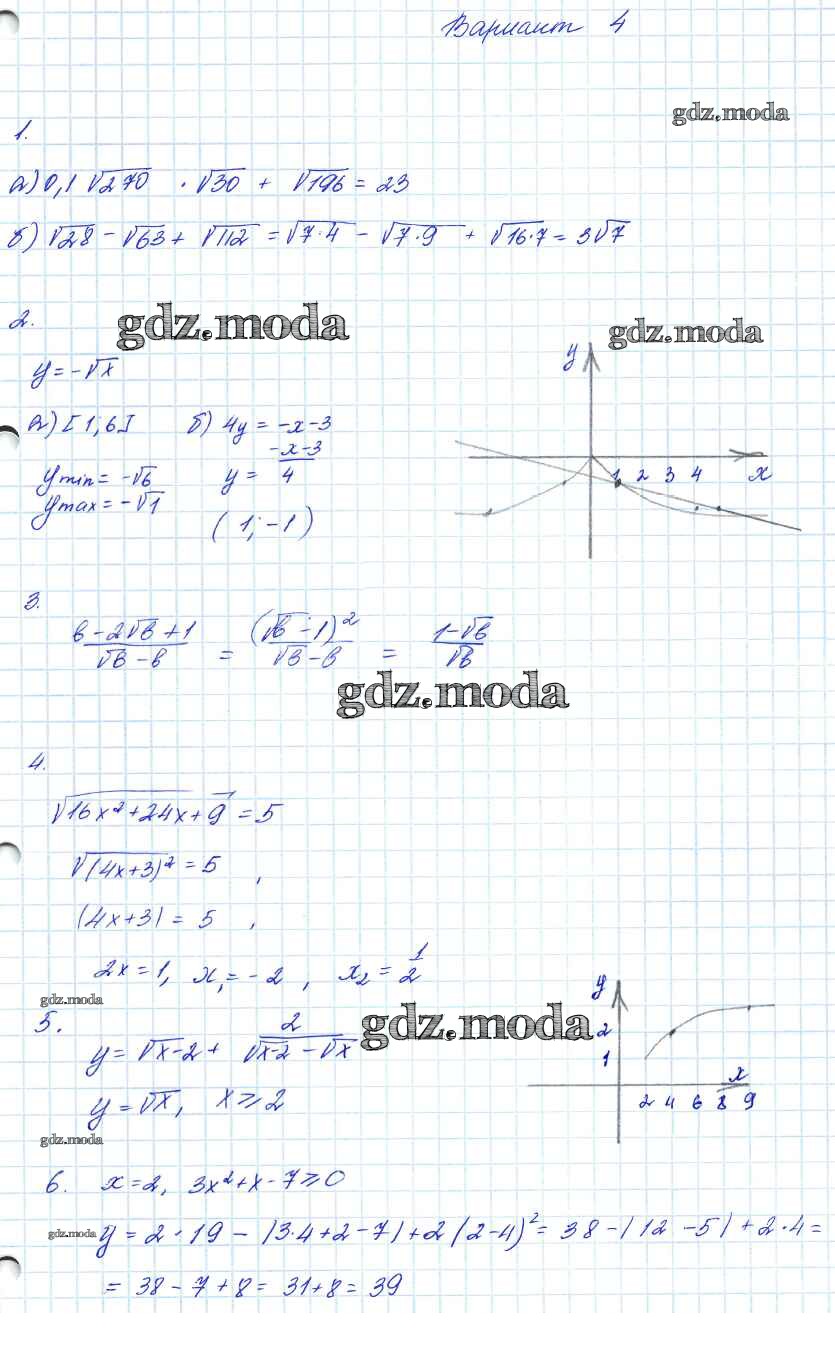 Вариант 4
gdz.moda
1.
а) 0,1 √270 · √30 + √196 = 23
б) √28 - √63 + √112 = √7·4 - √7·9 + √16·7 = 3√7
2.
gdz.moda
gdz.moda
y = -√x
а) [1; 6]
y min = -√6
y max = -√1
б) 4y = -x-3
y = (-x-3)/4
(1; -1)
y
1 2 3 4 x
3.
(в - 2√в + 1)/(√в - в) = (√в - 1)²/(√в - в) = (1-√в)/√в
gdz.moda
4.
√16x²+24x+9 = 5
√(4x+3)² = 5 ,
(4x+3) = 5 ,
2x = 1, x₁ = -2 , x₂ = 1/2
gdz.moda
5.
y = √x-2 + 2/(√x-2 - √x)
gdz.moda
y = √x, x ≥ 2
y
2
1
x
2 4 6 8 9
gdz.moda
6. x = 2, 3x²+x-7 ≥ 0
gdz.moda
y = 2·19 - |3·4+2-7| + 2(2-4)² = 38 - |12-5| + 2·4 =
= 38 - 7 + 8 = 31+8 = 39